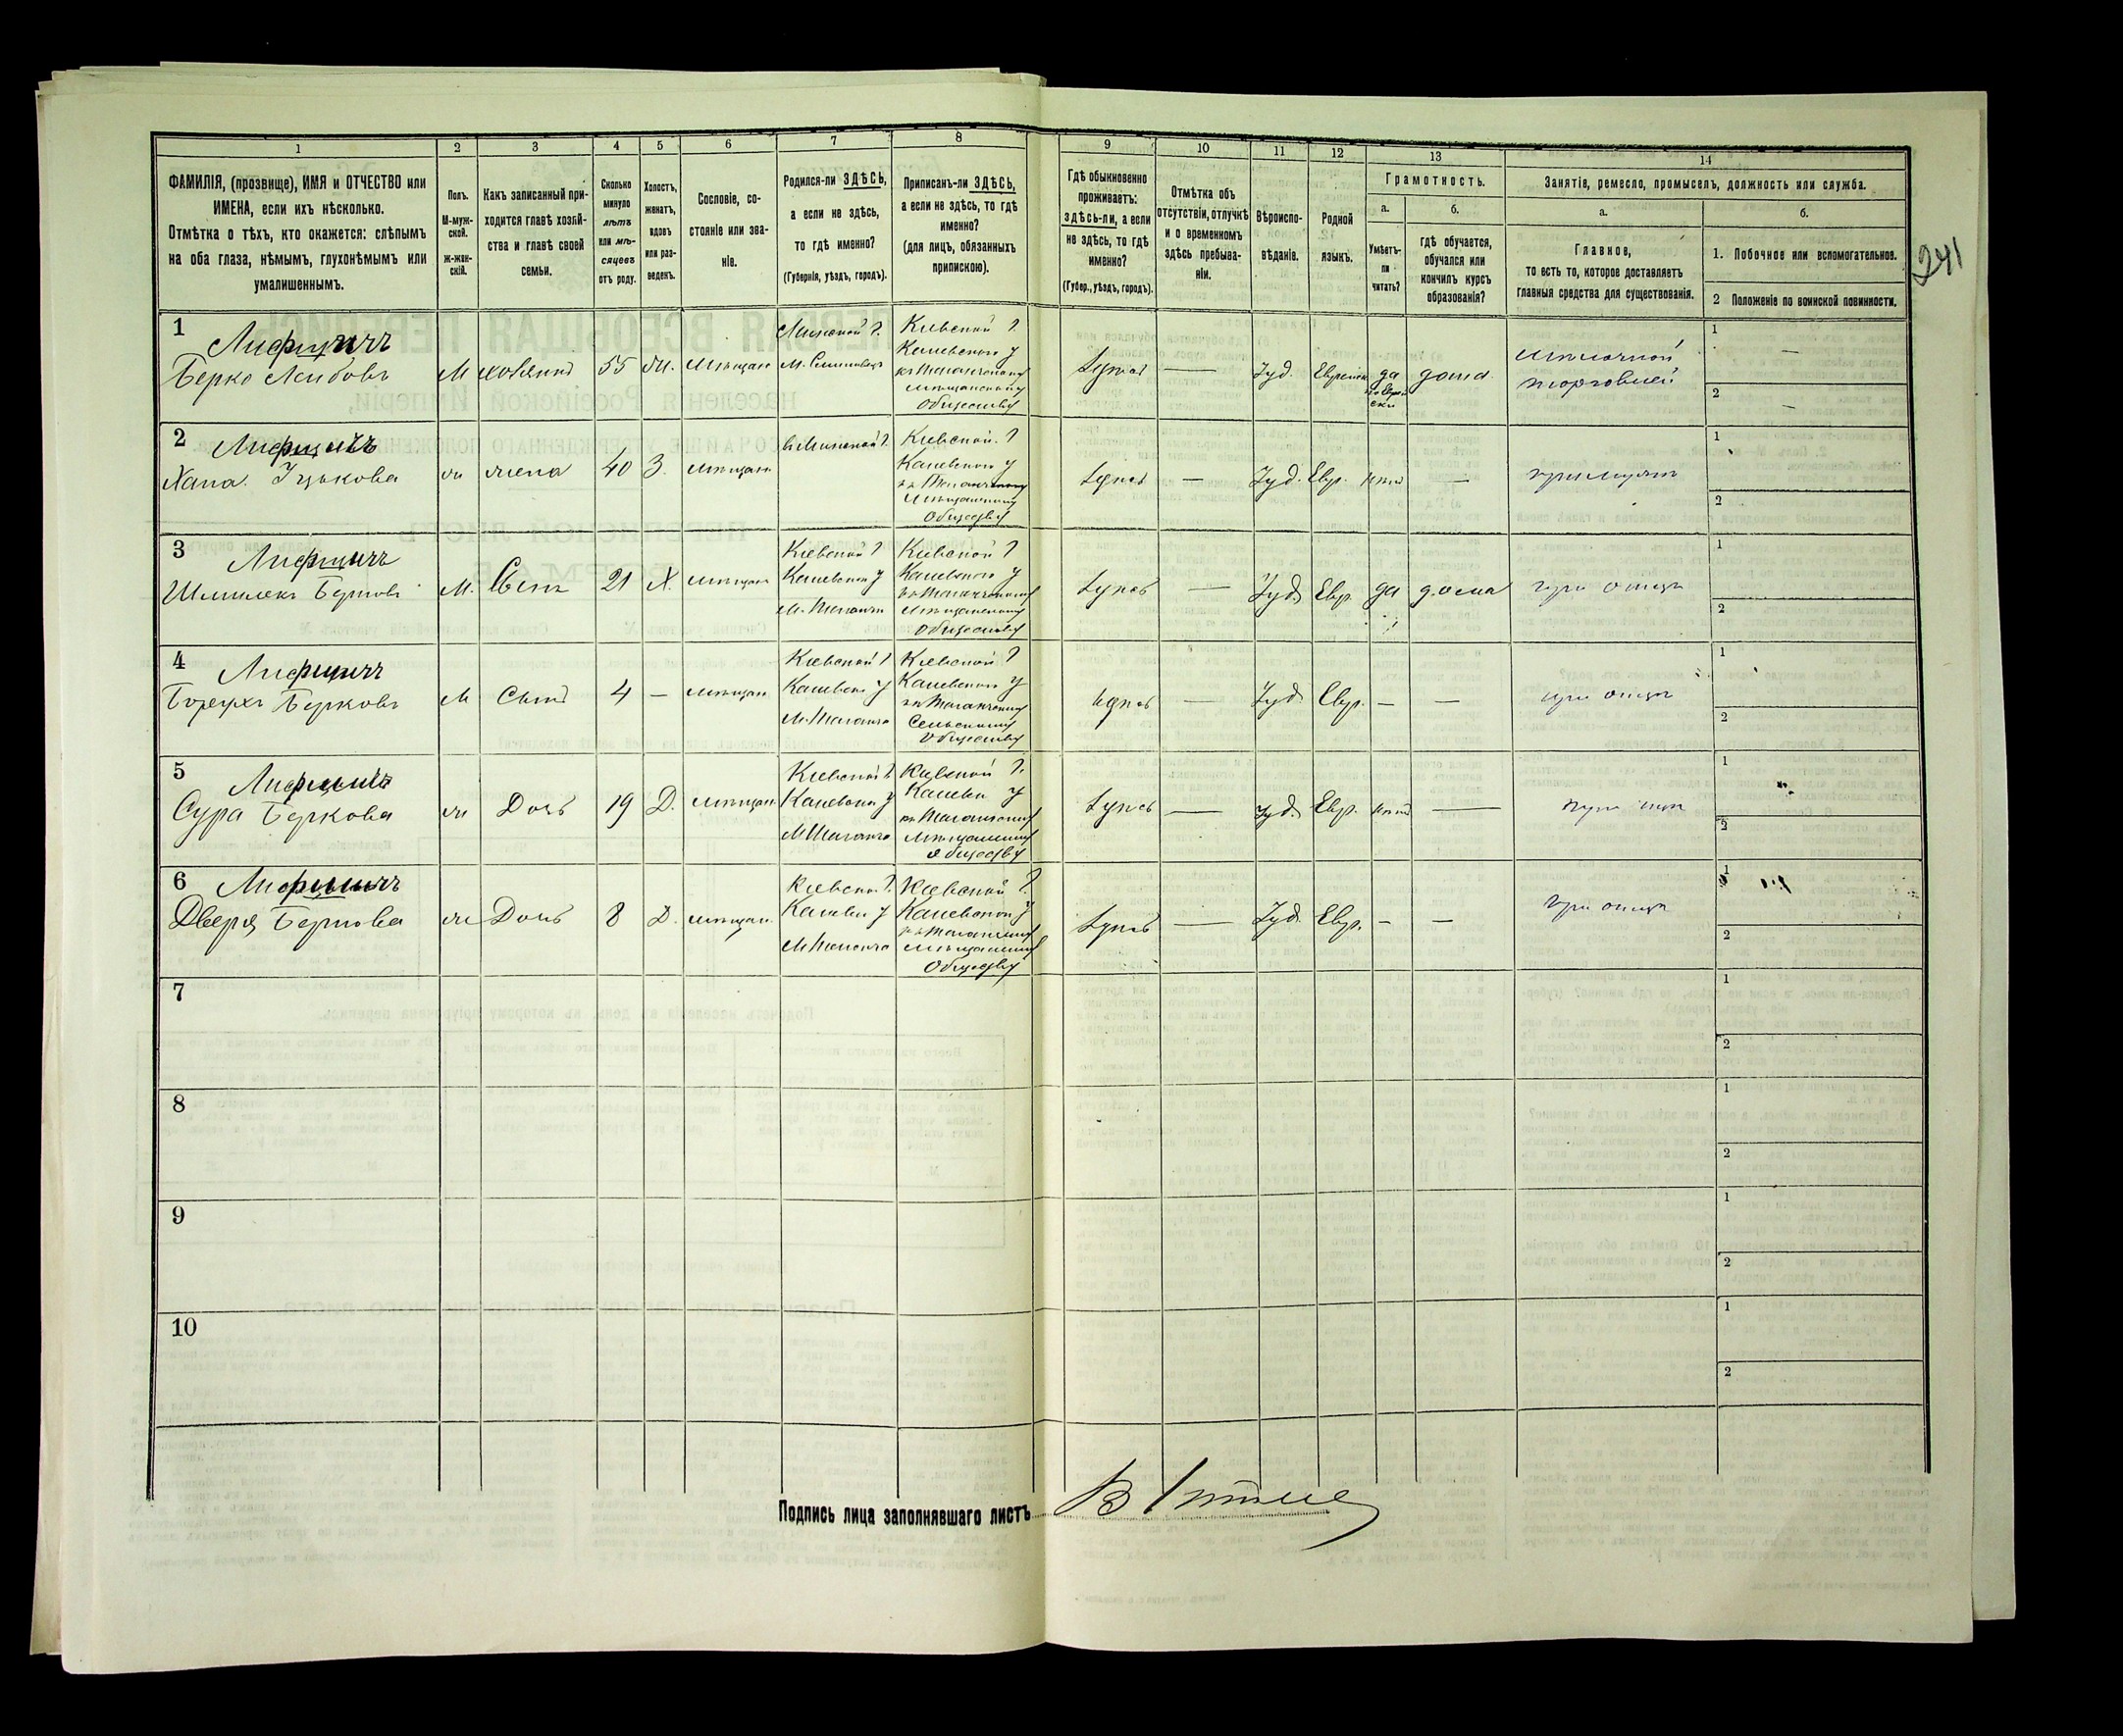 1 2 3 4 5 6 7 8 9 10 11 12 13 14
ФАМИЛІЯ, (прозвище), ИМЯ и ОТЧЕСТВО или
ИМЕНА, если ихъ нѣсколько.
Отмѣтка о тѣхъ, кто окажется: слѣпымъ
на оба глаза, нѣмымъ, глухонѣмымъ или
умалишеннымъ.
Полъ.
М-муж-
ской.
ж-жен-
скій.
Какъ записанный при-
ходится главѣ хозяй-
ства и главѣ своей
семьи.
Сколько
минуло
лѣтъ
или мѣ-
сяцевъ
отъ роду.
Холостъ,
женатъ,
вдовъ
или раз-
веденъ.
Сословіе, со-
стояніе или зва-
ніе.
Родился-ли ЗДѢСЬ,
а если не здѣсь,
то гдѣ именно?
(Губернія, уѣздъ, городъ).
Приписанъ-ли ЗДѢСЬ,
а если не здѣсь, то гдѣ
именно?
(для лицъ, обязанныхъ
припискою).
Гдѣ обыкновенно
проживаетъ:
здѣсь-ли, а если
не здѣсь, то гдѣ
именно?
(Губер., уѣздъ, городъ).
Отмѣтка объ
отсутствіи, отлучкѣ
и о временномъ
здѣсь пребыва-
ніи.
Вѣроиспо-
вѣданіе.
Родной
языкъ.
Грамотность.
а.
Умѣетъ-
ли
читать?
б.
гдѣ обучается,
обучался или
кончилъ курсъ
образованія?
Занятіе, ремесло, промыселъ, должность или служба.
а.
Главное,
то есть то, которое доставляетъ
главныя средства для существованія.
б.
1. Побочное или вспомогательное.
2 Положеніе по воинской повинности.
241
1 Лифшичъ
Берко Лейбовъ
М хозяинъ 55 ж. мѣщан
Минской г.
Кіевской г.
Каневского у
къ Таганчскому
мѣщанскому
обществу
здѣсь — Іуд. Еврейск да
дома
мѣлочной
торговлей
1 —
2 —
2 Лифшичъ
Хана Іцькова
ж жена 40 З. мѣщан
въ Минской г.
Кіевской г
Каневского у
къ Таганчскому
мѣщанскому
обществу
здѣсь — Іуд. Евр. нѣтъ —
при мужѣ
1
2
3 Лифшичъ
Шмилекъ Берковъ
М. Сынъ 21 Х мѣщан
Кіевской г
Каневского у
М. Таганчи
Кіевской г
Каневского у
къ Таганчскому
мѣщанскому
обществу
здѣсь — Іуд. Евр. да дома
при отцѣ
1
2
4 Лифшичъ
Борухъ Берковъ
М Сынъ 4 — мѣщан
Кіевской г
Каневск у
М. Таганча
Кіевской г
Каневского у
къ Таганчскому
Сельскому
обществу
здѣсь — Іуд. Евр. — —
при отцѣ
1
2
5 Лифшичъ
Сура Беркова
ж Дочь 19 Д. мѣщан
Кіевской г.
Каневск у
М Таганча
Кіевской г.
Каневск у
къ Таганчскому
мѣщанскому
обществу
здѣсь — Іуд. Евр. нѣтъ —
при отцѣ
1
2
6 Лифшичъ
Двера Беркова
ж Дочь 8 Д. мѣщан.
Кіевской г.
Каневск у
М Таганча
Кіевской г.
Каневского у
къ Таганчскому
мѣщанскому
обществу
здѣсь — Іуд. Евр. — —
при отцѣ
1
2
7 1
2
8 1
2
9 1
2
10 1
2
Подпись лица заполнявшаго листъ